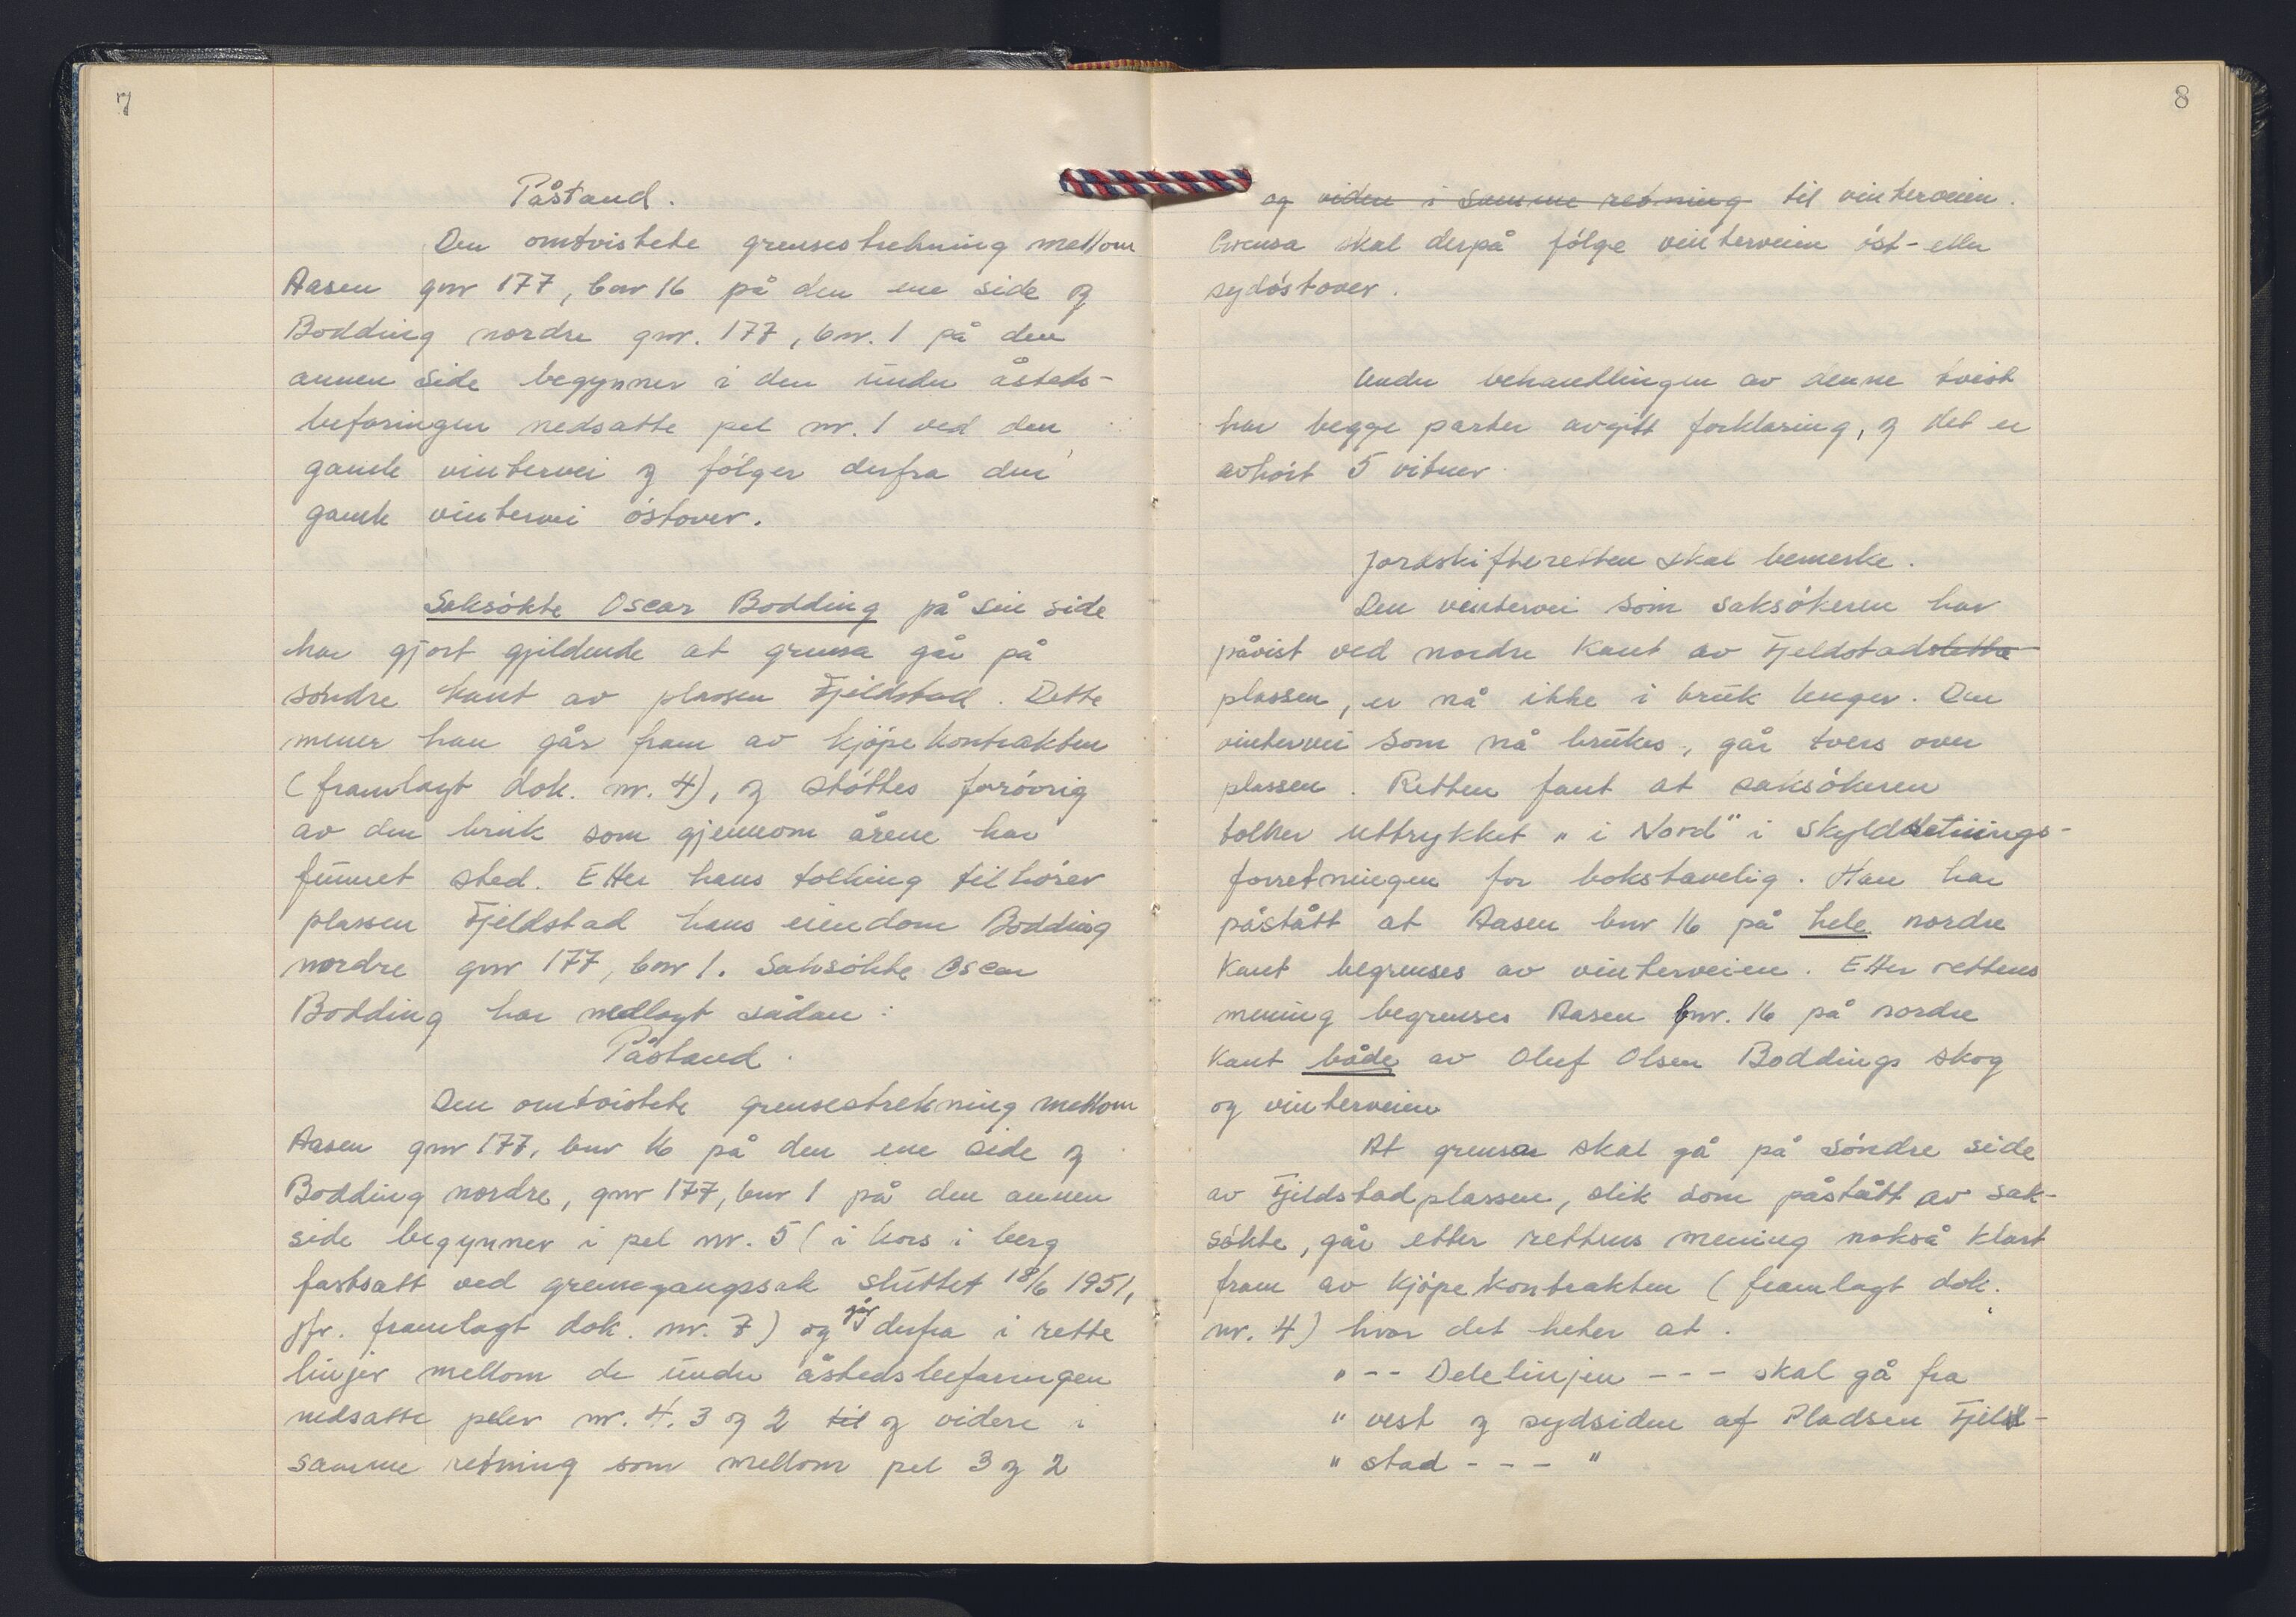 7
Påstand.
Den omtvistete grensestrekning mellom
Aasen gnr 177, bnr 16 på den ene side og
Bodding nordre gnr. 177, bnr. 1 på den
annen side begynner i den under åsteds-
befaringen nedsatte pel nr. 1 ved den
gamle vintervei og følger derfra den
gamle vintervei østover.
Saksøkte Oscar Bodding på sin side
har gjort gjeldende at grensa går på
søndre kant av plassen Fjeldstad. Dette
mener han går fram av kjøpekontrakten
(framlagt dok. nr. 4), og støttes forøvrig
av den bruk som gjennom årene har
funnet sted. Etter hans tolking tilhører
plassen Fjeldstad hans eiendom Bodding
nordre gnr 177, bnr 1. Saksøkte Oscar
Bodding har nedlagt sådan:
Påstand.
Den omtvistete grensestrekning mellom
Aasen gnr 177, bnr 16 på den ene side og
Bodding nordre, gnr 177, bnr 1 på den annen
side begynner i pel nr. 5 (i kors i berg
fastsatt ved grensegangssak sluttet 18/6 1951,
jfr. framlagt dok. nr. 7) og går derfra i rette
linjer mellom de under åstedsbefaringen
nedsatte peler nr. 4, 3 og 2 til og videre i
samme retning som mellom pel 3 og 2
8
og viden i samme retning til vinterveien.
Grensa skal derpå følge vinterveien øst- eller
sydøstover.
Under behandlingen av denne tvist
har begge parter avgitt forklaring, og det er
avhørt 5 vitner.
Jordskifteretten skal bemerke.
Den vintervei som saksøkeren har
påvist ved nordre kant av Fjeldstadsletta
plassen, er nå ikke i bruk lenger. Den
vintervei som nå brukes, går tvers over
plassen. Retten fant at saksøkeren
tolker uttrykket "i Nord" i skylddelings-
forretningen for bokstavelig. Han har
påstått at Aasen bnr 16 på hele nordre
kant begrenses av vinterveien. Etter rettens
mening begrenses Aasen bnr. 16 på nordre
kant både av Oluf Olsen Boddings skog
og vinterveien
At grensa skal gå på søndre side
av Fjeldstadplassen, slik som påstått av sak-
søkte, går etter rettens mening nokså klart
fram av kjøpekontrakten (framlagt dok.
nr. 4) hvor det heter at.
" -- Delelinjen --- skal gå fra
" vest og sydsiden af Pladsen Fjeld-
" stad --- "